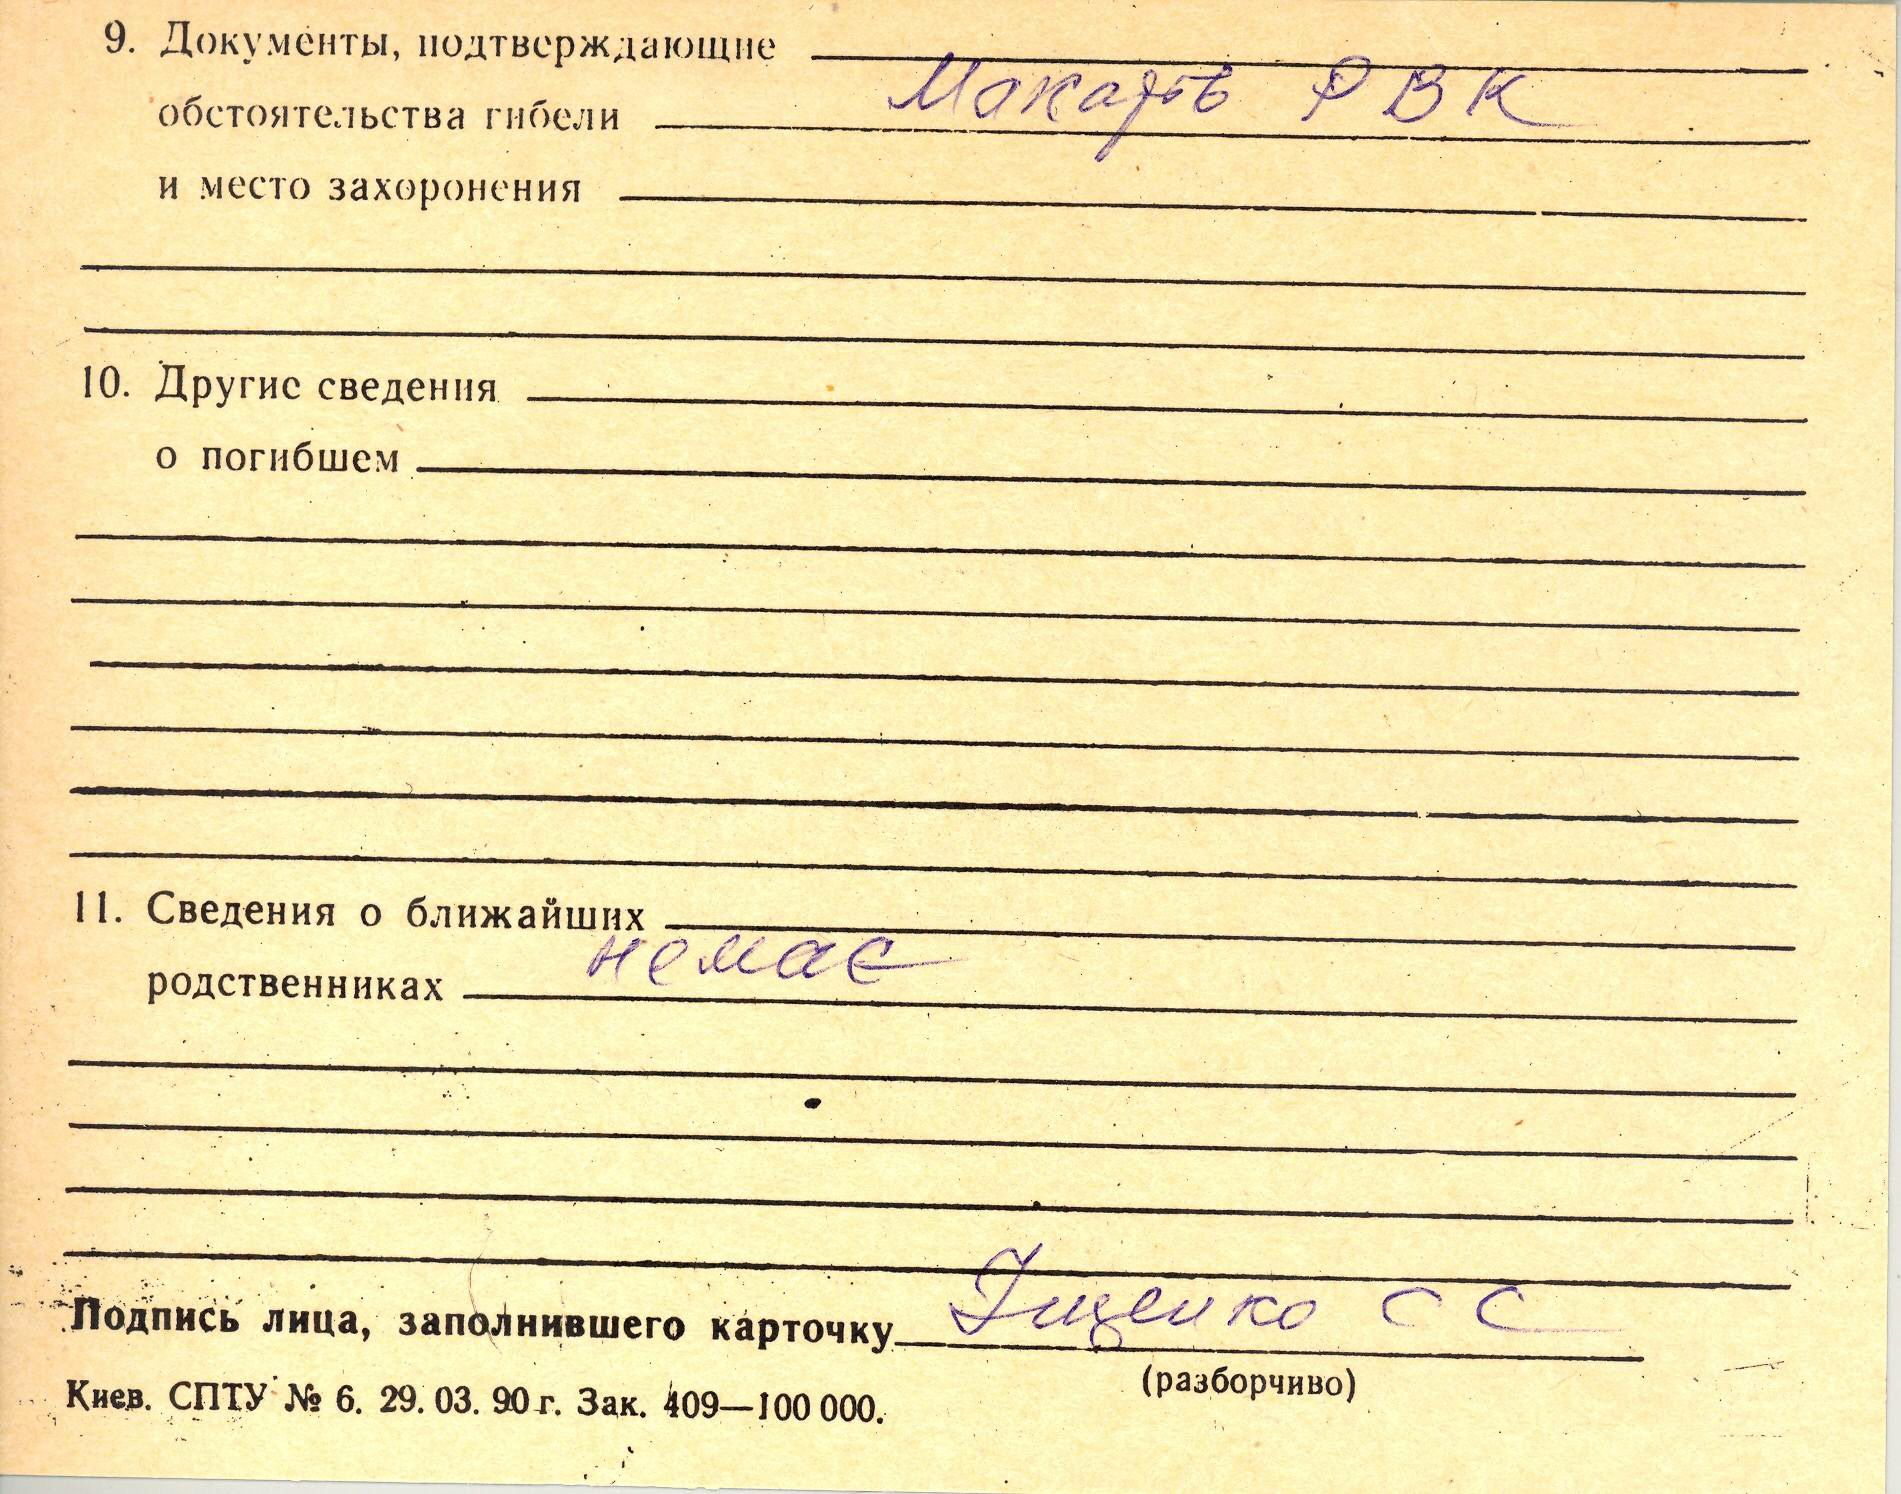 9. Документы, подтверждающие
обстоятельства гибели Макарів РВК
и место захоронения
10. Другие сведения
о погибшем
11. Сведения о ближайших
родственниках немає
Подпись лица, заполнившего карточку Іщенко С С
(разборчиво)
Киев. СПТУ № 6. 29. 03. 90 г. Зак. 409—100 000.